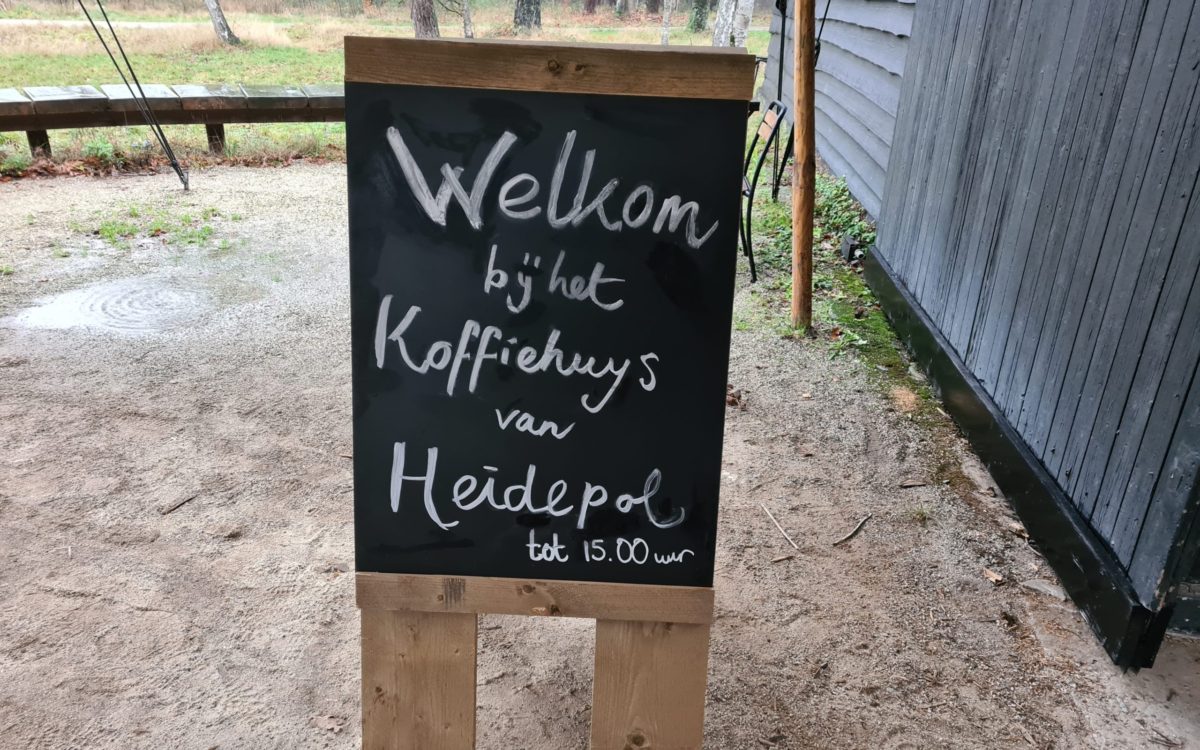 Welkom
bij het
Koffiehuys
van
Heidepol
tot 15.00 uur